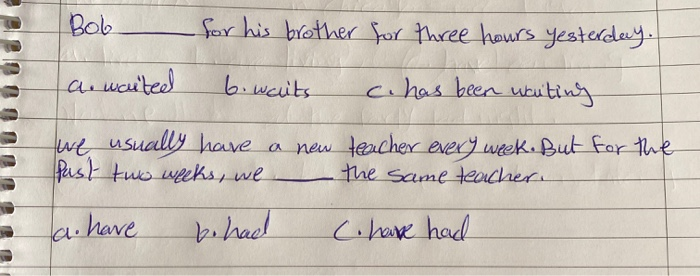 Bob ______ for his brother for three hours yesterday.
a. waited b. waits c. has been waiting
we usually have a new teacher every week. But for the
Past two weeks, we ______ the same teacher.
a. have b. had C. have had